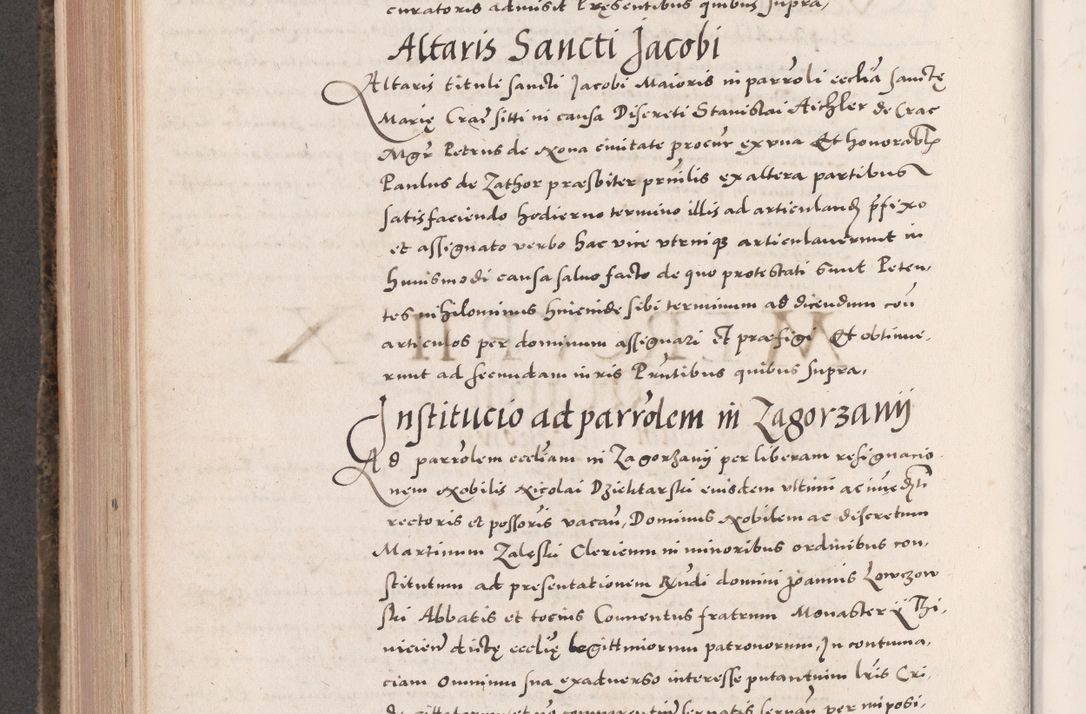 curatoris admisit Pręsentibus quibus supra,
Altaris Sancti Jacobi
Altaris tituli sancti Jacobi Maioris in parroli ecclia sanctę
Marię Crac sitti in causa Discreti Stanislai Aichler de Crac
Mgr Petrus de Nova civitate procur ex vna Et honorabl
Paulus de Zathor præsbiter privilis ex altera partibus
satisfaciendo hodierno termino illis ad articuland pfixo
et assignato verbo hac vice vtrinq articulaverunt in
huiusmodi causa salvo facto de quo protestati sunt Peten,
tes nihilominus hincinde sibi terminum ad dicendum con
articulos per dominum assignari Et præfigi Et obtinue,
runt ad secundam iuris Prntibus quibus supra,
Institucio ad parrolem in Zagorzanij
Ad parrolem eccliam in Zagorzanij per liberam resignacio
nem Nobilis Nicolai Dzielitarski eiusdem vltimi ac
rectoris et possoris vacan, Dominus Nobilem ac discretum
Martinum Zaleski Clericum in minoribus ordinibus con,
stitutum ad presentationem Rndi domini Joannis Lowczow
ski Abbatis et tocius Conventus fratrum Monasterij Thi,
nicien dictę ecclię legittimorum patronorum, In contuma,
ciam omnium sua exadverso interesse putantium lris Cri,